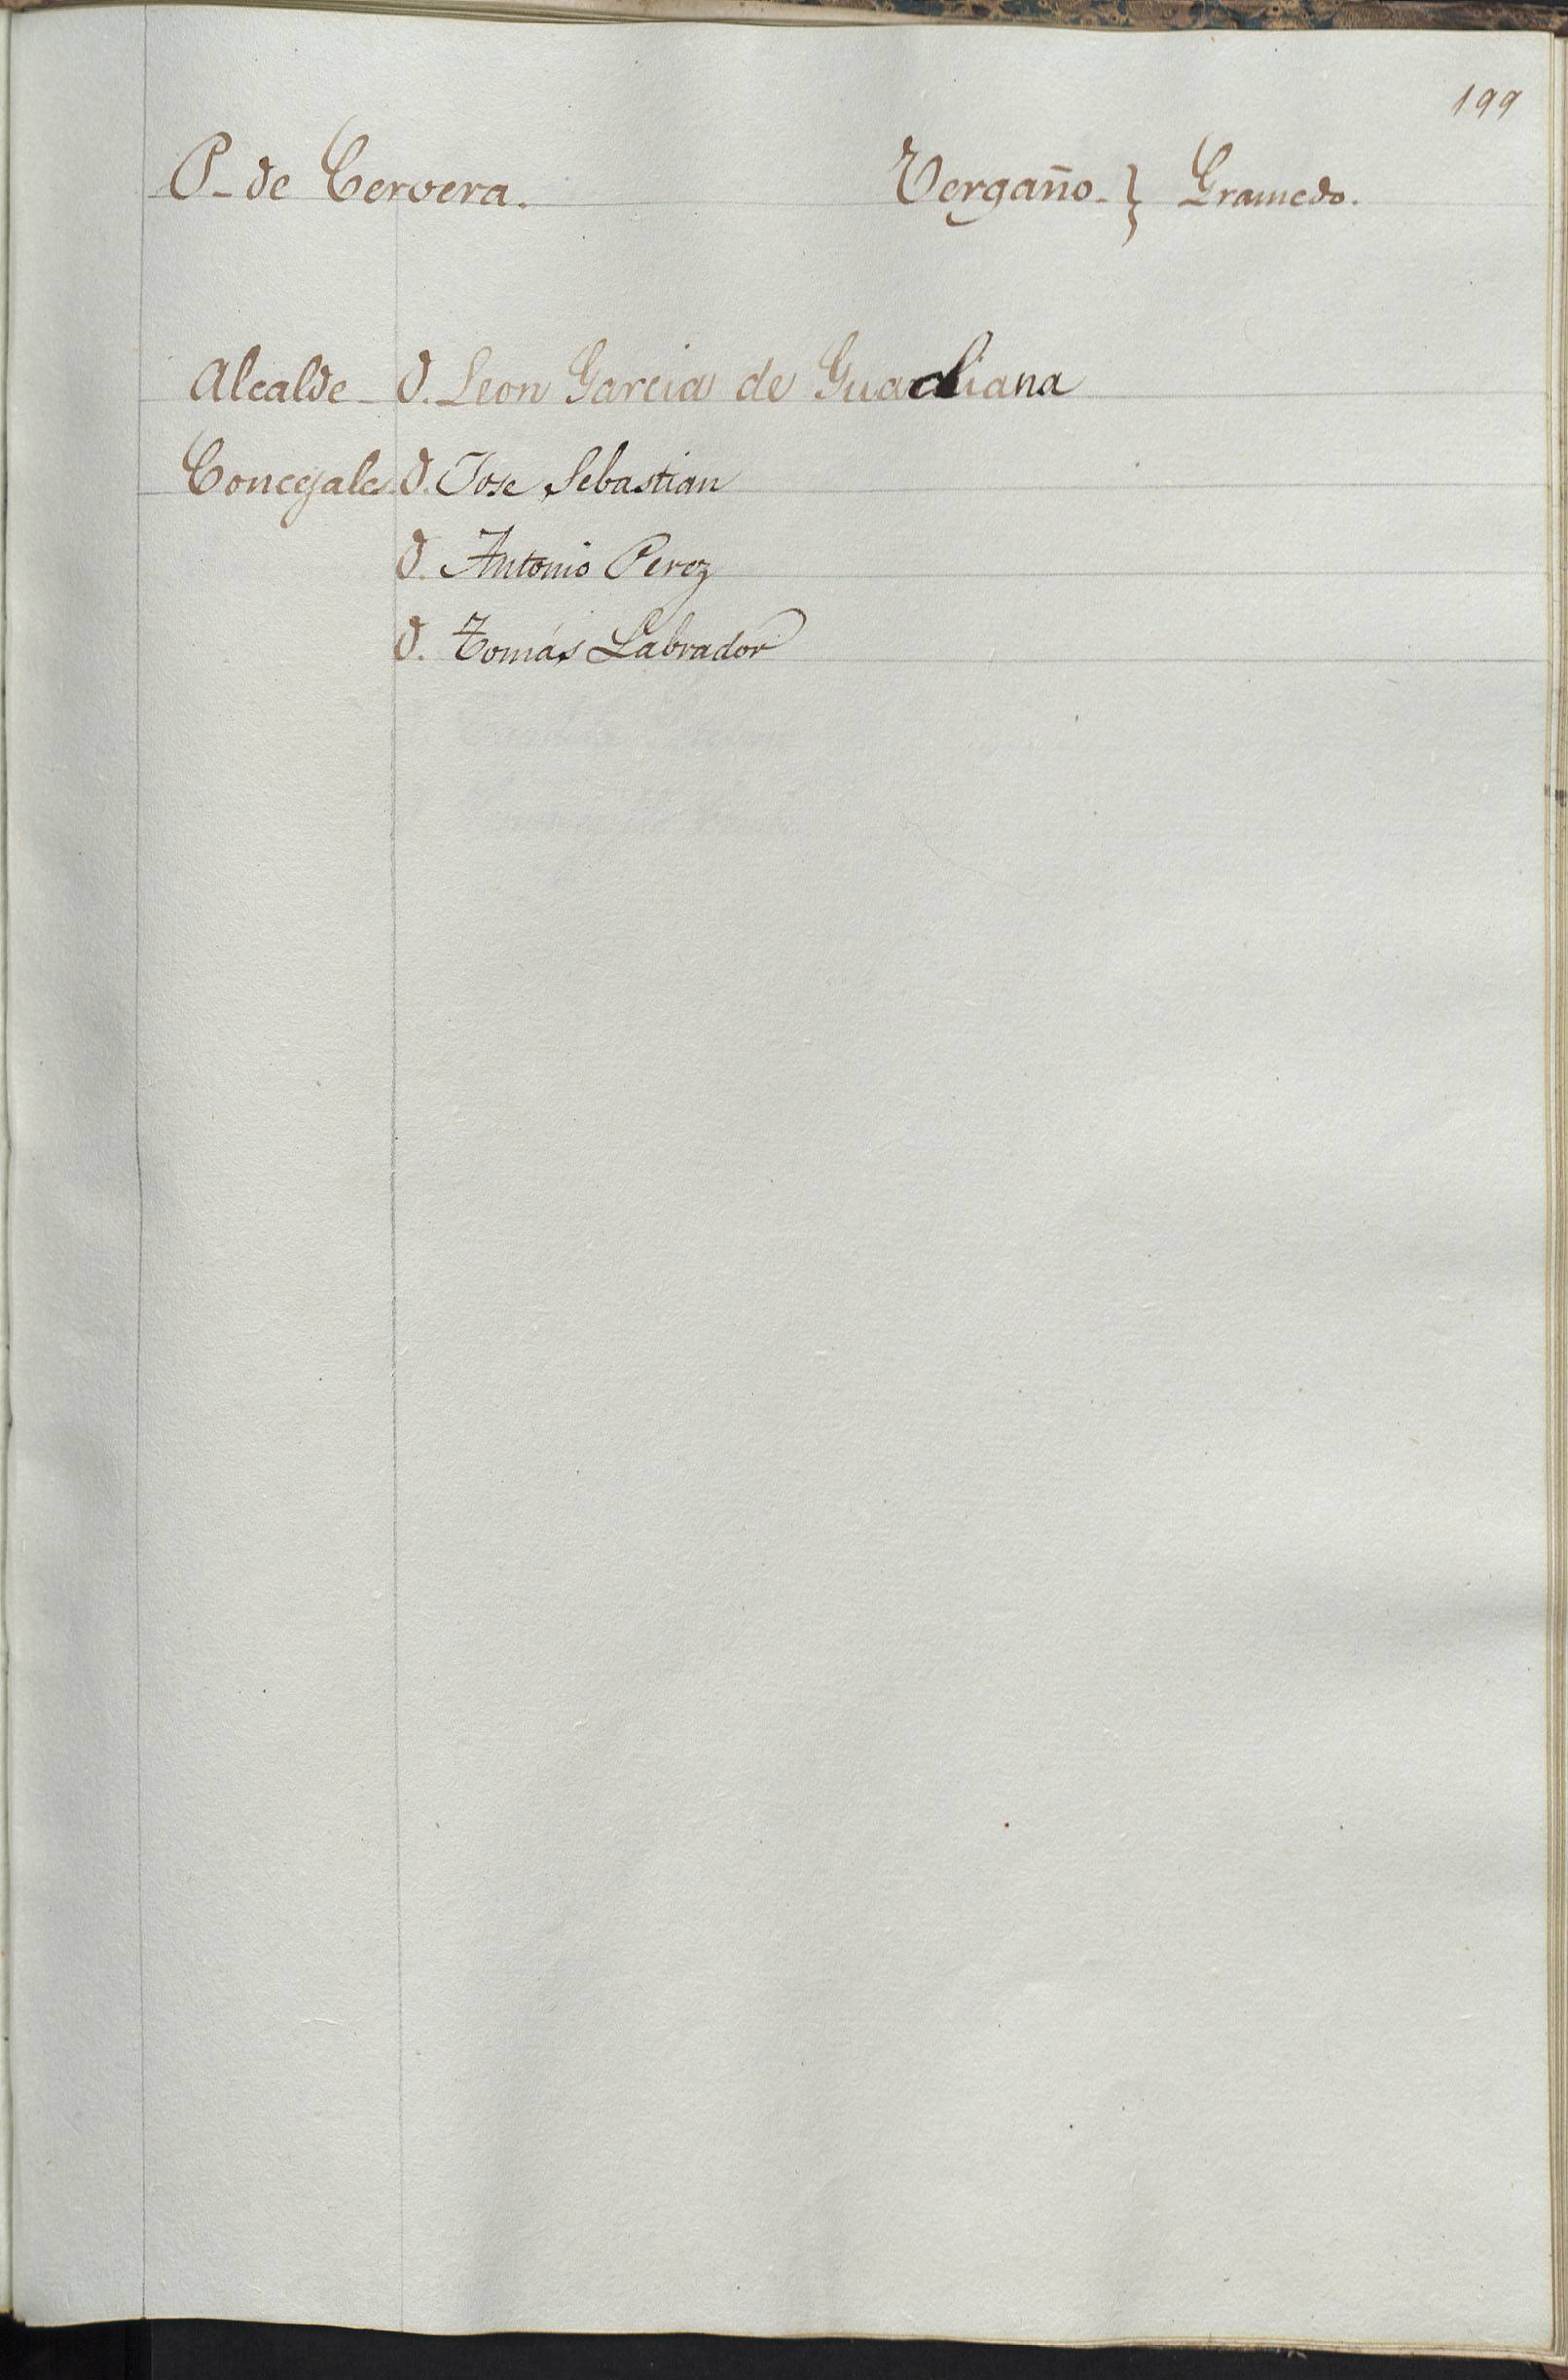 199
P- de Cervera. Vergaño- } Gramedo.
Alcalde- D. Leon Garcia de Guadiana
Concejales D. Jose Sebastian
D. Antonio Perez
D. Tomás Labrador